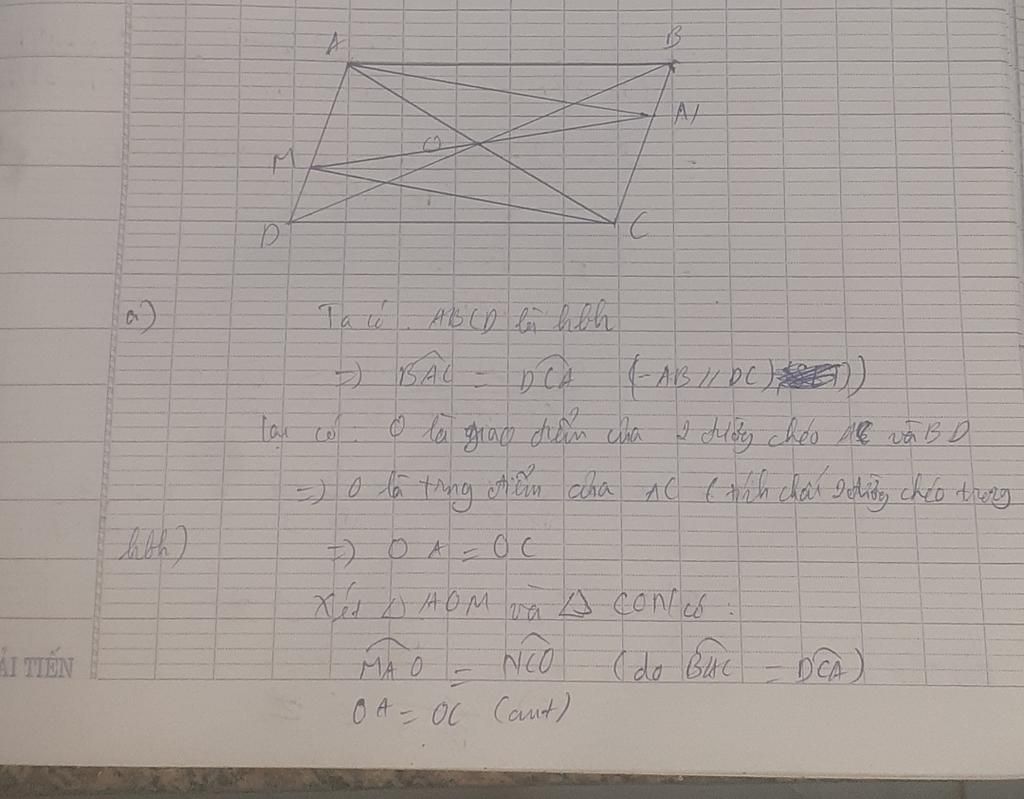 A B
N
O
M
D C
a) Ta có. ABCD là hbh
=> BAC = DCA (-AB // DC)
Lại có. O là giao điểm của 2 đường chéo AC và BD
=> O là trung điểm của AC (tính chất 2 đường chéo trong
hbh) => OA = OC
Xét △ AOM và △ CON có:
MAO = NCO (do BAC = DCA)
OA = OC (cmt)
ẢI TIẾN